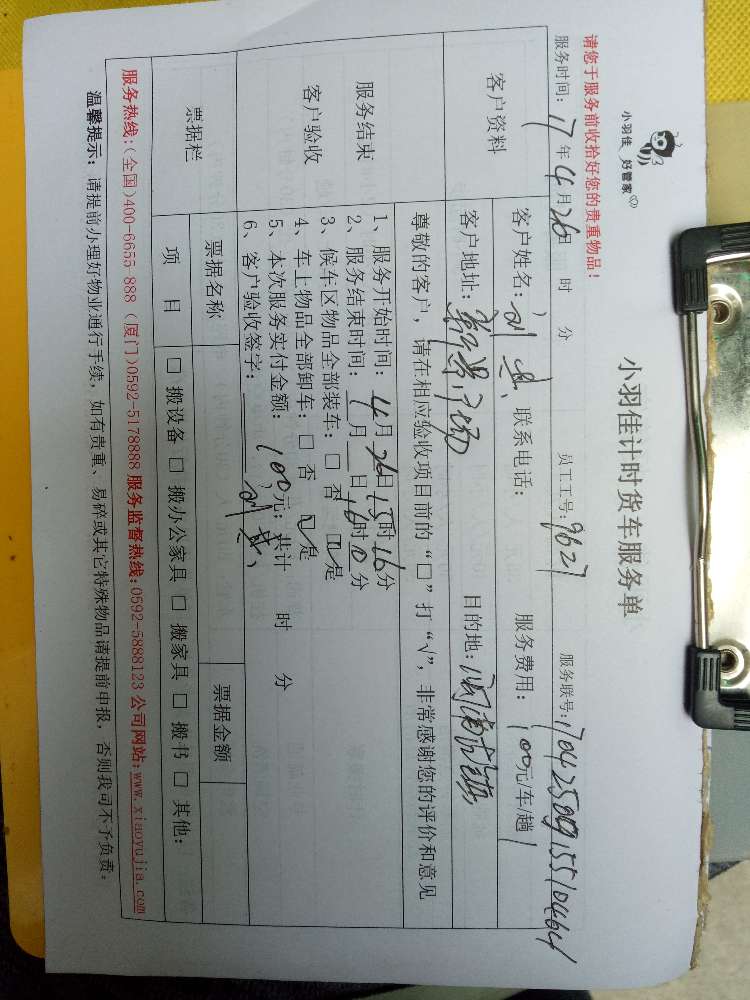 小羽佳 好管家
小羽佳计时货车服务单
请您于服务前收拾好您的贵重物品！
服务时间：17年4月26日 时 分 员工工号：9627 服务联号：
客户资料
客户姓名： 联系电话： 服务费用：100元/车/趟
客户地址： 目的地：闽南古镇
服务结束
客户验收
尊敬的客户，请在相应验收项目前的“□”打“√”，非常感谢您的评价和意见
1、服务开始时间：4月26日15时16分
2、服务结束时间： 月 日16时10分
3、候车区物品全部装车：□ 否 ☑是
4、车上物品全部卸车：□ 否 ☑是
5、本次服务实付金额：100元；共计 时 分
6、客户验收签字：
票据栏
票据名称 票据金额
项 目 □ 搬设备 □ 搬办公家具 □ 搬家具 □ 搬书 □ 其他：
服务热线：(全国)400-6655 888 (厦门)0592-5178888 服务监督热线：0592-5888123 公司网站：www.xiaoyujia.com
温馨提示：请提前办理好物业通行手续，如有贵重、易碎或其它特殊物品请提前申报，否则我司不予负责；